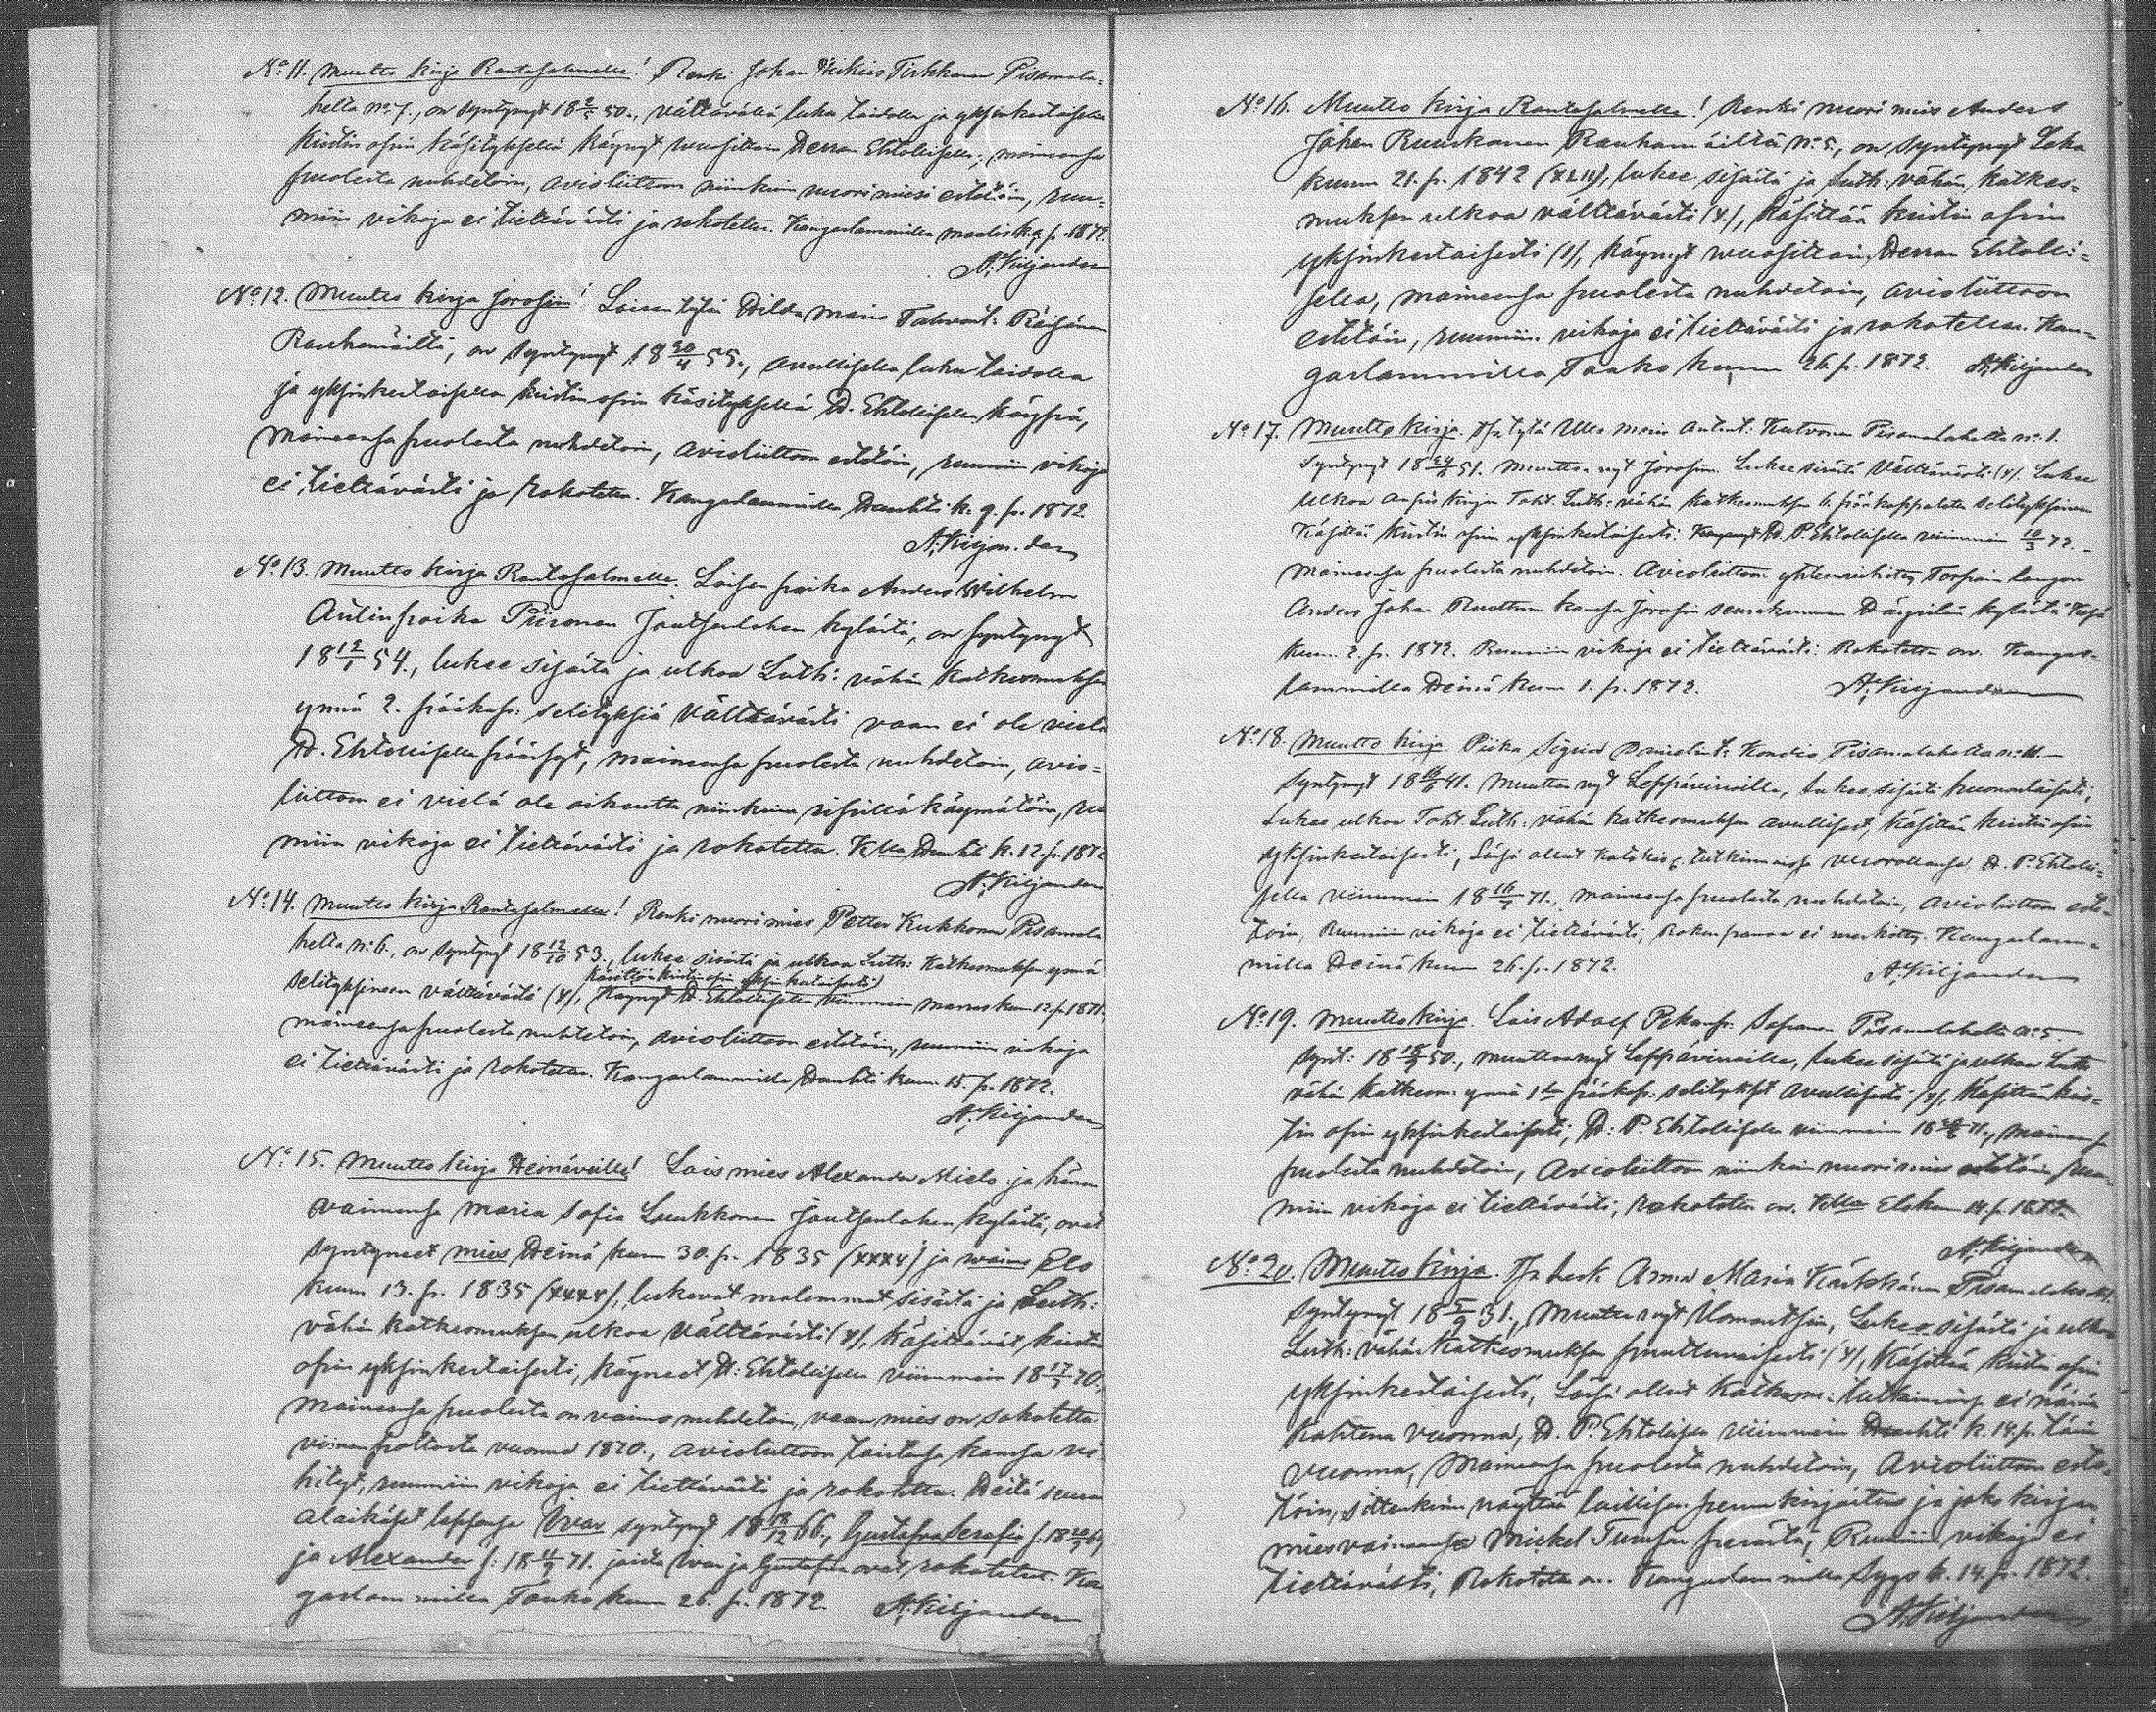 No 11. Muutto kirja Rantasalmelle! Renki Johan Tirkkonen Pisamala-
helta no 7., on syntynyt 18 50., välttävällä luku taidolla ja yksinkertaisella
kristin opin käsityksellä käynyt wuosittain Herran Ehtollisella, maineensa
puolesta nuhdetoin, avioliittoon niinkuin nuorimiesi estetöin, ruu-
miin vikoja ei tiettävästi ja rokotettu. Kangaslammilla maalisk. 9 p. 1872.
A. Kiljander
No 12. Muutto kirja Joroisiin! Loisen tytär Hilda Maria Tahvont: Räisänen
Rauhamäiltä, on syntynyt 18 30/4 55., avullisella luku taidolla
ja yksinkertaisella kristin opin käsityksellä H. Ehtollisella käypä,
maineensa puolesta nuhdetoin, avioliittoon estetöin, ruumiin vikoja
ei tiettävästi ja rokotettu. Kangaslammilla Huhti k. 9. p. 1872.
A. Kiljander
No 13. Muutto kirja Rantasalmelle. Loisen poika Anders Wilhelm
Antinpoika Piironen Joutsenlahen kylästä, on syntynyt
18 12/1 54., lukee sisältä ja ulkoa Luth: vähän katkesmuksen
ynnä 2. pääkap: selityksiä välttävästi vaan ei ole vielä
H. Ehtollisella päässyt, maineensa puolesta nuhdetoin, avio-
liittoon ei vielä ole oikeutta niinkuin ripillä käymätöin, ruu
miin vikoja ei tiettävästi ja rokotettu. K:lla Huhti k. 12. p. 1872
A. Kiljander
No 14. Muutto kirja Rantasalmelle! Renki nuori mies Petter Kukkonen Pisamala
helta no 6., on syntynyt 18 12/10 53., lukee sisältä ja ulkoa Luth: Katkesmuksen ynnä
Käsittää kristin opin yksinkertaisesti
selityksineen välttävästi (y), Käynyt H. Ehtollisella viimmein marraskuun 12 p. 1871,
maineensa puolesta nuhtetoin, avioliittoon estetöin, ruumiin vikoja
ei tiettävästi ja rokotettu. Kangaslammilla Huhti kuun 15. p. 1872.
A. Kiljander
No 15. Muutto kirja Heinävedelle! Lois mies Alexander Mielo ja hänen
vaimonsa Maria Sofia Luukkonen Joutsenlahen kylästä, ovat
syntyneet mies Heinä kuun 30. p. 1835 (xxxv) ja waimo Elo
kuun 13. p. 1835 (xxxv), lukevat molemmat sisältä ja Luth:
vähän katkesmuksen ulkoa välttävästi (y), käsittävät kristin
opin yksinkertaisesti, käyneet H: Ehtollisella viimmein 18 17/7 70.,
maineensa puolesta on vaimo nuhdetoin, vaan mies on sakotettu
viinan poltosta vuonna 1870., avioliittoon toistensa kanssa vi-
hityt, ruumiin vikoja ei tiettävästi ja rokotettu. Heitä seuraa
alaikäset lapsensa Iivar syntynyt 18 18/12 66., Gustafva Serafia s. 18 69
ja Alexander s: 18 71. joista Iivar ja Gustafva ovat rokotetut. Kan
gaslammilla Touko kuun 26. p. 1872. A. Kiljander
No 16. Muutto kirja Rantasalmelle! Renki nuori mies Anders
Johan Ruuskanen Rauhamäiltä no 5., on syntynyt Loka
kuun 21. p. 1842 (XLII), lukee sisältä ja Luth: vähän katkes-
muksen ulkoa välttävästi (y), käsittää kristin opin
yksinkertaisesti (1), käynyt wuosittain Herran Ehtolli-
sella, maineensa puolesta nuhdetoin, avioliittoon
estetöin, ruumiin vikoja ei tiettävästi ja rokotettu. Kan-
gaslammilla Touko kuun 26. p. 1872. A. Kiljander
No 17. Muutto kirja. Tytär Ulla Maria Antint: Kutvonen Pisamalahelta no 1.
syntynyt 18 51. Muuttaa nyt Joroisiin. Lukee sisältä välttävästi (y). Lukee
ulkoa Aapis kirjan Toht. Luth: vähän katkesmuksen 6. pääkappaletta selityksineen
Käsittää kristin opin yksinkertaisesti. Käynyt H. P. Ehtollisella viimmein 10/3 72.
Maineensa puolesta nuhdetoin. Avioliittoon yhteenvihitty Torpan langon
Anders Johan Ruottisen kanssa Joroisin seurakunnan kylästä Kesä
kuun 2. p. 1872. Ruumiin vikoja ei tiettävästi. Rokotettu on. Kangas-
lammilla Heinä kuun 1. p. 1872. A. Kiljander
No 18. Muutto kirja Piika Sigrid Danielint: Kondio Pisamalahelta no 11.
syntynyt 18 41. Muuttaa nyt Leppävirroille, Lukee sisältä huononlaisesti,
Lukee ulkoa Toht. Luth: vähän katkesmuksen avullisest, käsittää kristin opin
yksinkertaisesti, Läsnä ollut katekis: tutkinnoissa vuorollansa, H. P. Ehtolli-
sella viimmein 18 16/7 71., maineensa puolesta nuhdetoin, avioliittoon este-
töin, Ruumiin vikoja ei tiettävästi, Rokon panoa ei merkitty. Kangaslam-
milla Heinä kuun 26. p. 1872. A. Kiljander
No 19. Muutto kirja. Lois Adolf Pekanp: Pisamalahelta no 5.
Synt: 18 50., muuttaa nyt Leppävirroille, lukee sisältä ja ulkoa Luth.
vähän katkesm: ynnä 1:sen pääkap: selitykset avullisesti (y), käsittää kris-
tin opin yksinkertaisesti, H: P. Ehtollisella viimmein 18 71., maineensa
puolesta nuhdetoin, Avioliittoon niinkuin nuori mies estetöin, ruu-
miin vikoja ei tiettävästi, rokotettu on. K:lla Elokuun 14. p. 1872.
A. Kiljander
No 20. Muutto kirja. Lesk Anna Maria Kärkkäinen Pisamalahelta
Syntynyt 18 5/9 31., Muuttaa nyt Ilomantsiin, Lukee sisältä ja ulkoa
Luth: vähän Katkesmuksen puuttuvaisesti (y), Käsittää kristin opin
yksinkertaisesti, Läsnä ollut Katkesm: tutkinnois ei näinä
kahtena vuonna, H. P. Ehtollisella viimmein Huhti k. 14. p. tänä
vuonna, Maineensa puolesta nuhdetoin, Avioliittoon este-
töin, sittenkuin näyttää laillisen perun kirjoitus ja jako kirjan
miesvainaansa Mickel Turusen perästä, Ruumiin vikoja ei
tiettävästi, Rokotettu on. Kangaslammilla Syys k. 14. p. 1872.
A. Kiljander